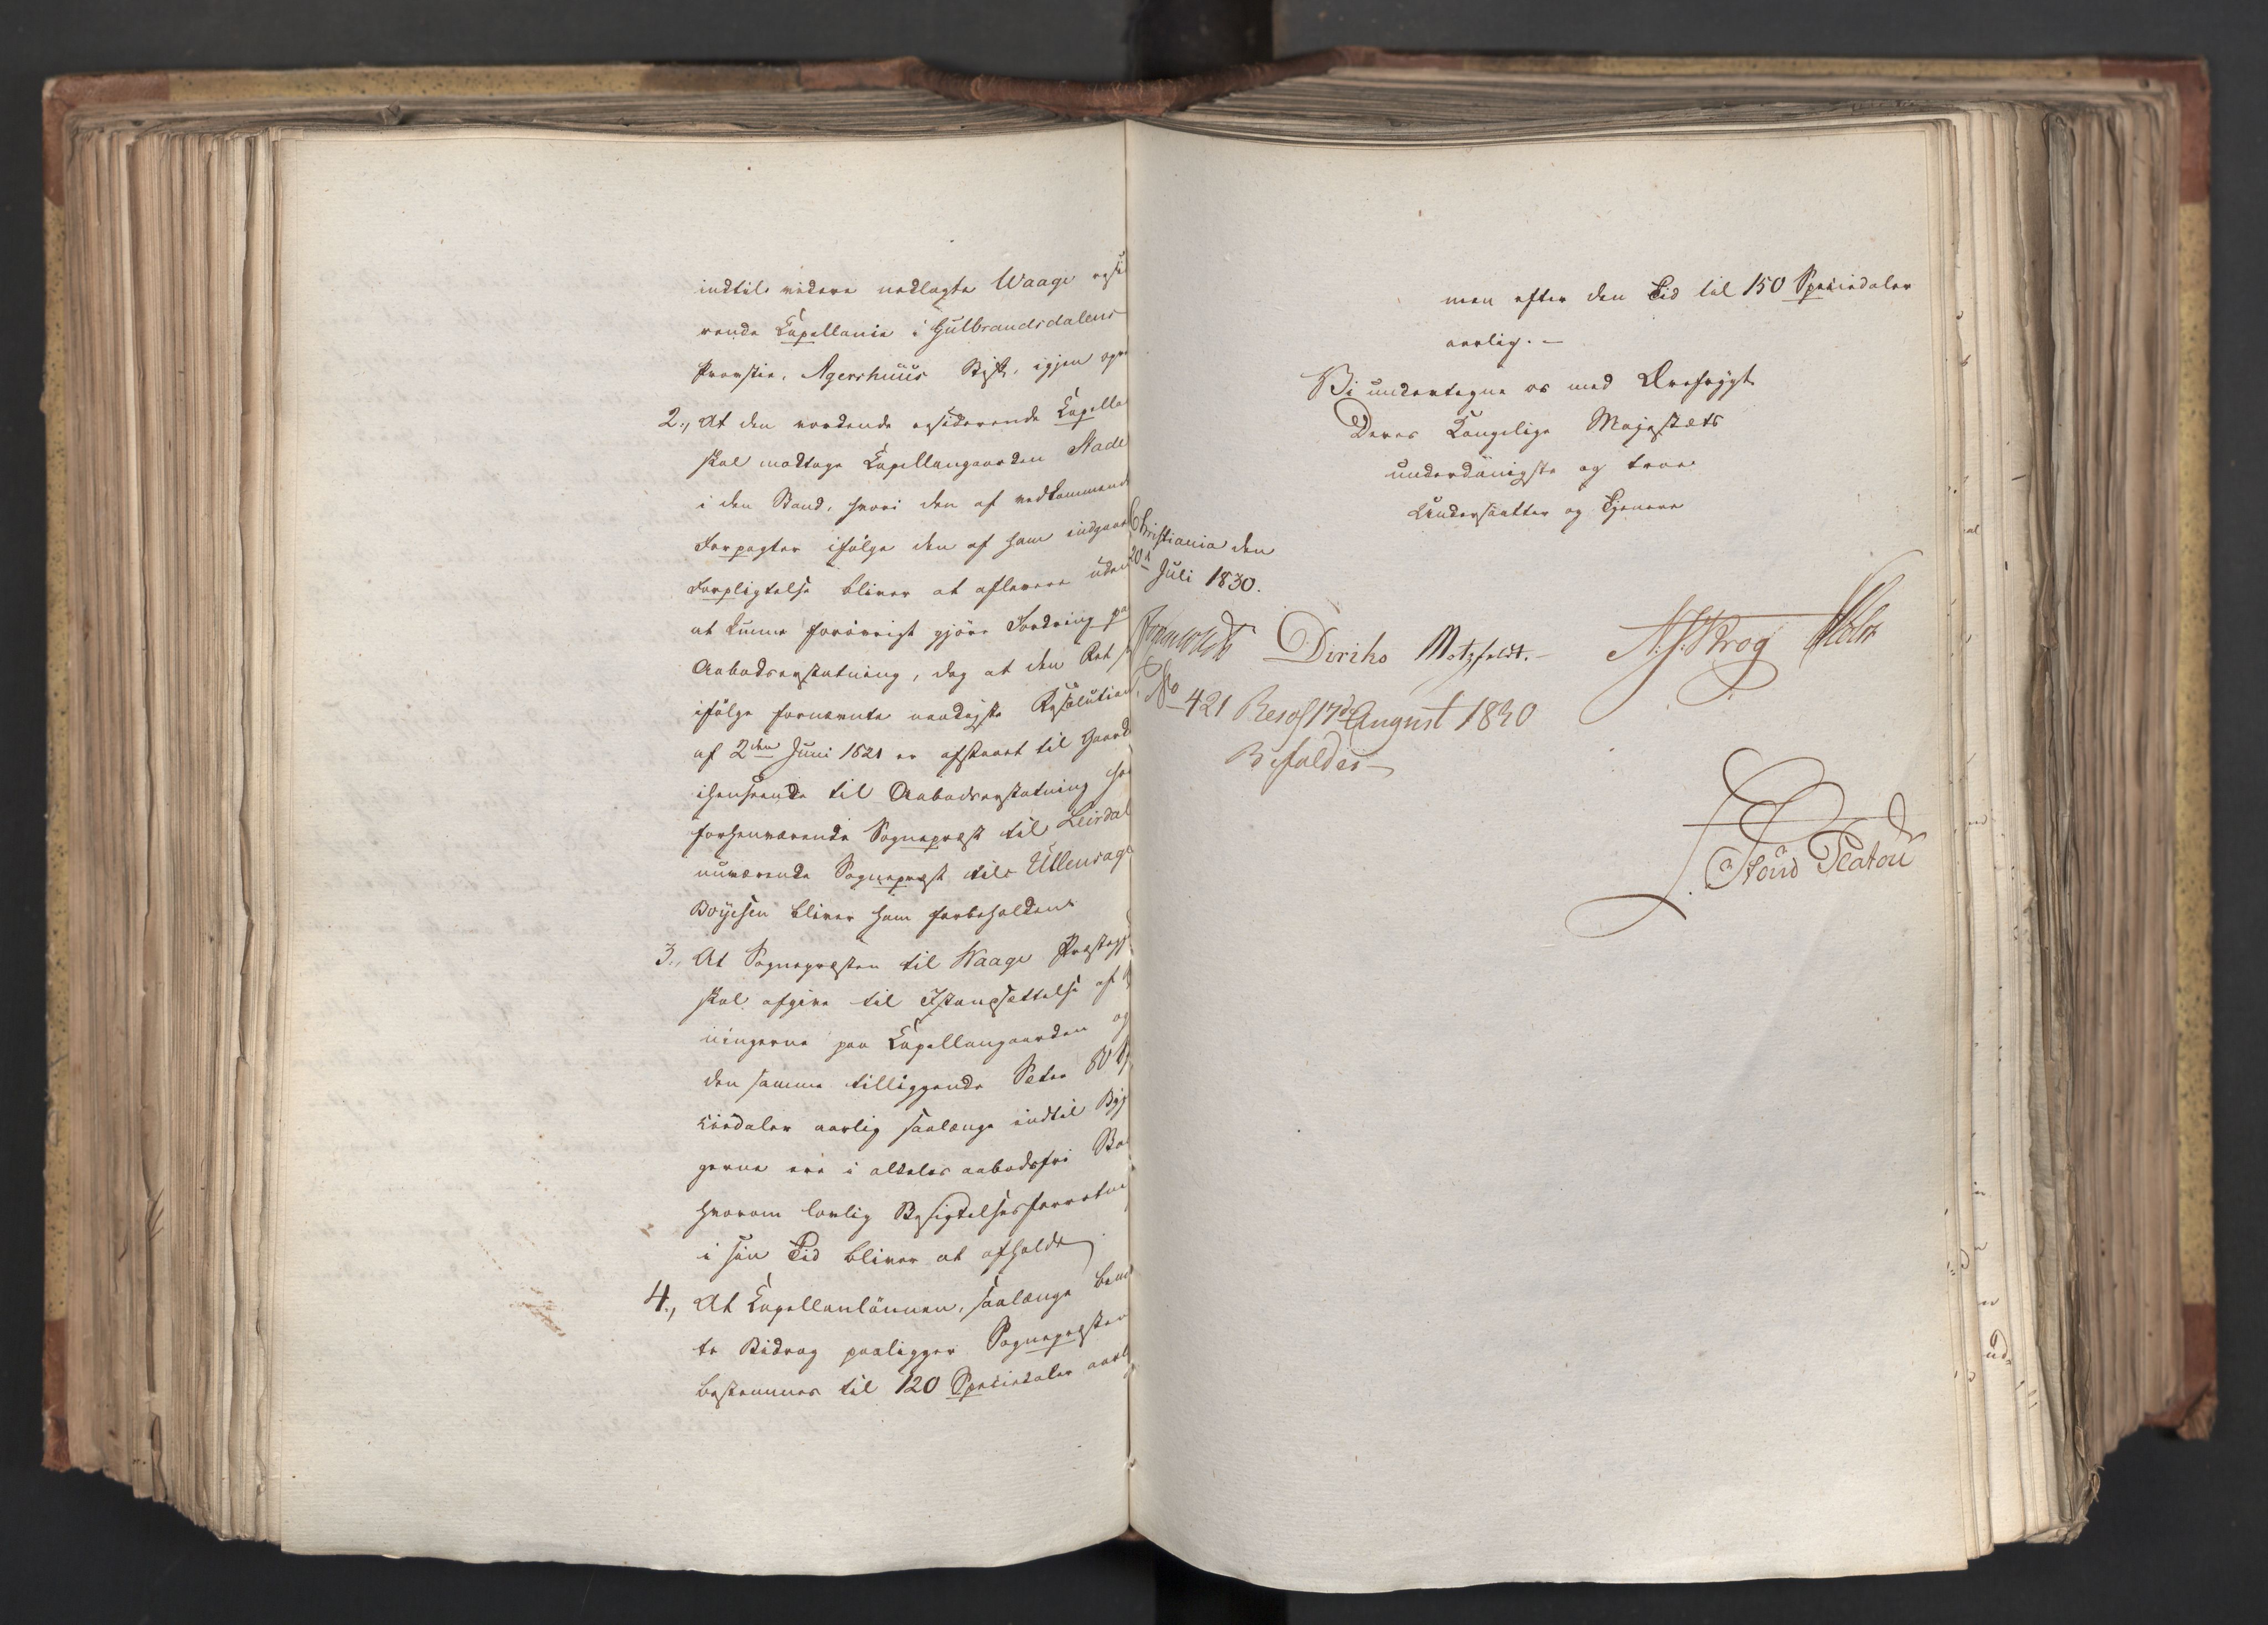 indtil videre nedlagte Waage resi
rende Capellanie i Gulbrandsdalens
Provstie, Agershuus Stift, igjen opre
2., At den vordende residerende Capella
skal modtage Capellangaarden Stade
i den Stand, hvori den af vedkommende
Forpagter ifølge den af ham indgaae
Forpligtelse bliver at aflevere uden
at kunne forøvrigt gjøre Fordring pa
Aabodserstatning, dog at den Ret s
ifølge fornævnte naadigste Resolution
af 2den Juni 1821 er afstaaet til Gaard
ihenseende til Aabodserstatning ho
forhenværende Sognepræst til Leirdal
nuværende Sognepræst til Ullensag
Boyesen bliver ham forbeholden
3., At Sognepræsten til Waage Præstegj
skal afgive til Istandsættelse af B
ningerne paa Capellangaarden og
den samme tilliggende Seter 80 Sp
ciedaler aarlig saalænge indtil Byg
gerne ere i aldeles aabodsfri Sta
hvorom lovlig Besigtelsesforretni
i sin Tid bliver at afholde
4., At Capellanlønnen, saalænge bem
te Bidrag paaligger Sognepræsten
bestemmes til 120 Speciedaler aarl
men efter den Tid til 150 Speciedaler
aarlig. –
Vi undertegne os med Ærefrygt
Deres Kongelige Majestæts
underdanigste og troe
Undersaatter og Tjenere
Christiania den
20de Juli 1830.
Diriks Motzfeldt. – Krog Holst
No 421 Resol 17de August 1830
Bifaldes –
Stoud Platou